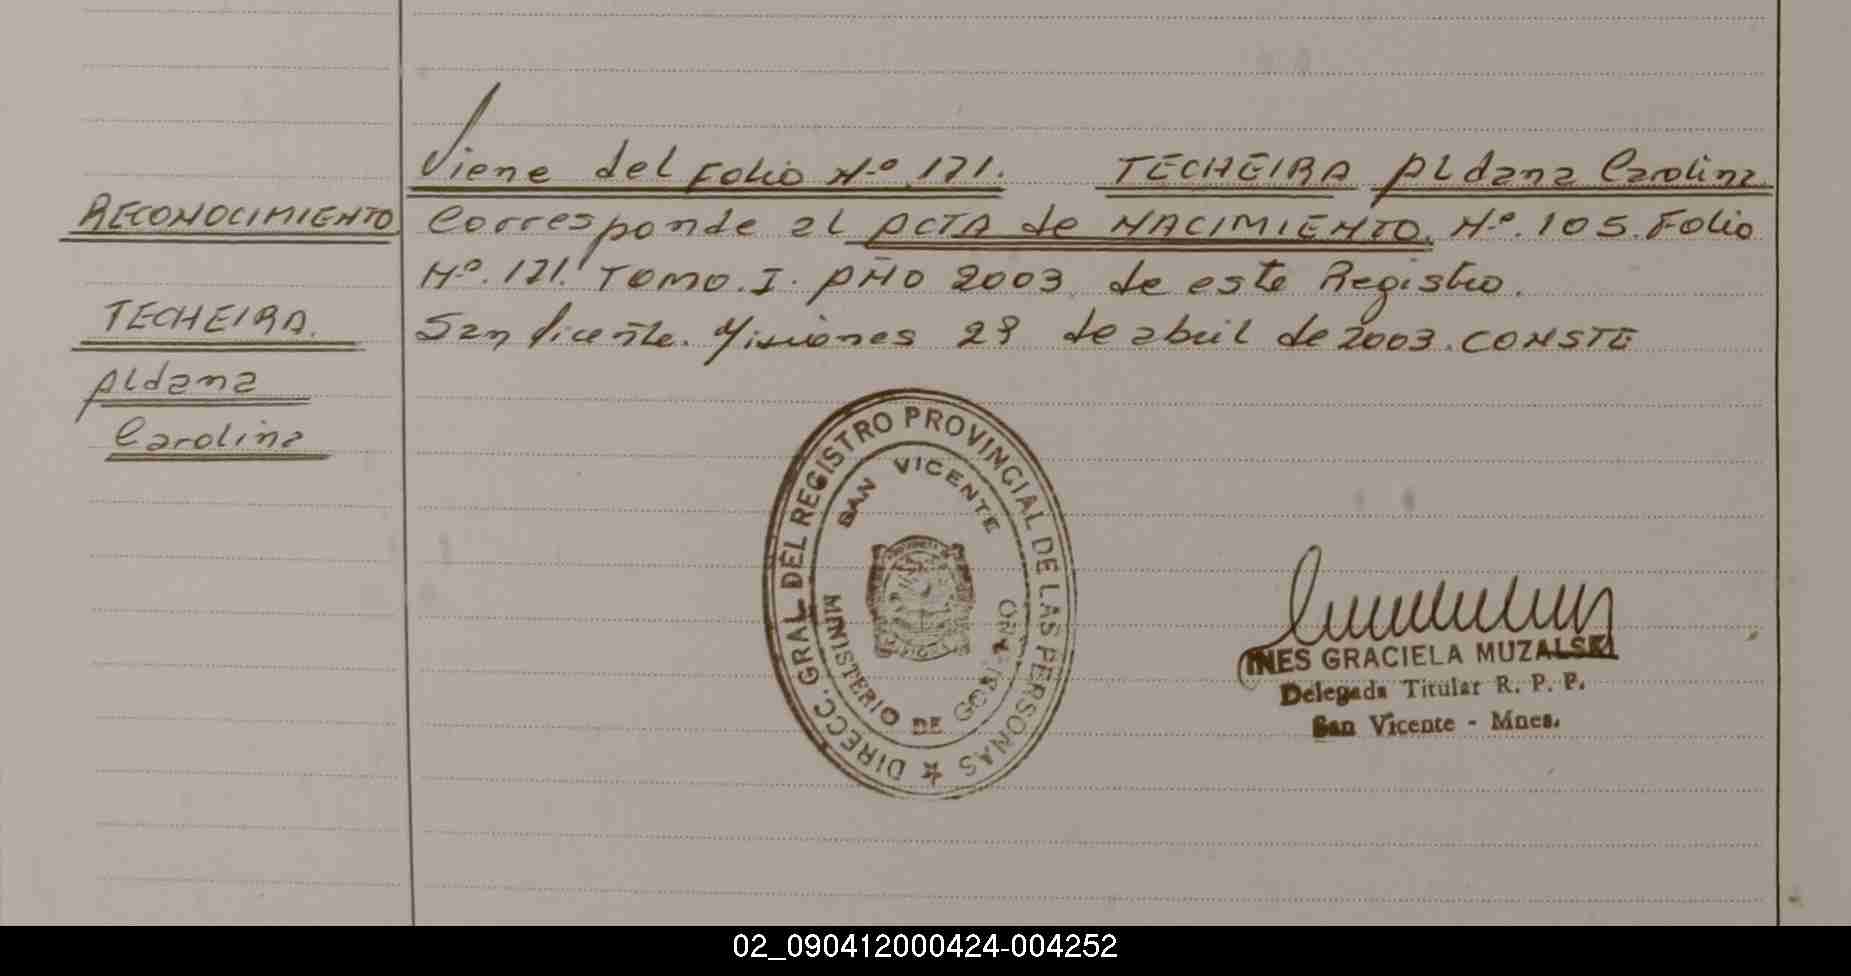 Viene del Folio Nº 171. TECHEIRA Aldana Carolina
RECONOCIMIENTO
Corresponde al ACTA de NACIMIENTO. Nº. 105. Folio
Nº. 171. TOMO. I. AÑO 2003 de este Registro.
TECHEIRA.
San Vicente. Misiones 29 de abril de 2003. CONSTE
Aldana
Carolina
DIRECC. GRAL DEL REGISTRO PROVINCIAL DE LAS PERSONAS
SAN VICENTE
MINISTERIO DE GOBIERNO
INES GRACIELA MUZALSKI
Delegada Titular R. P. P.
San Vicente - Mnes.
02_090412000424-004252